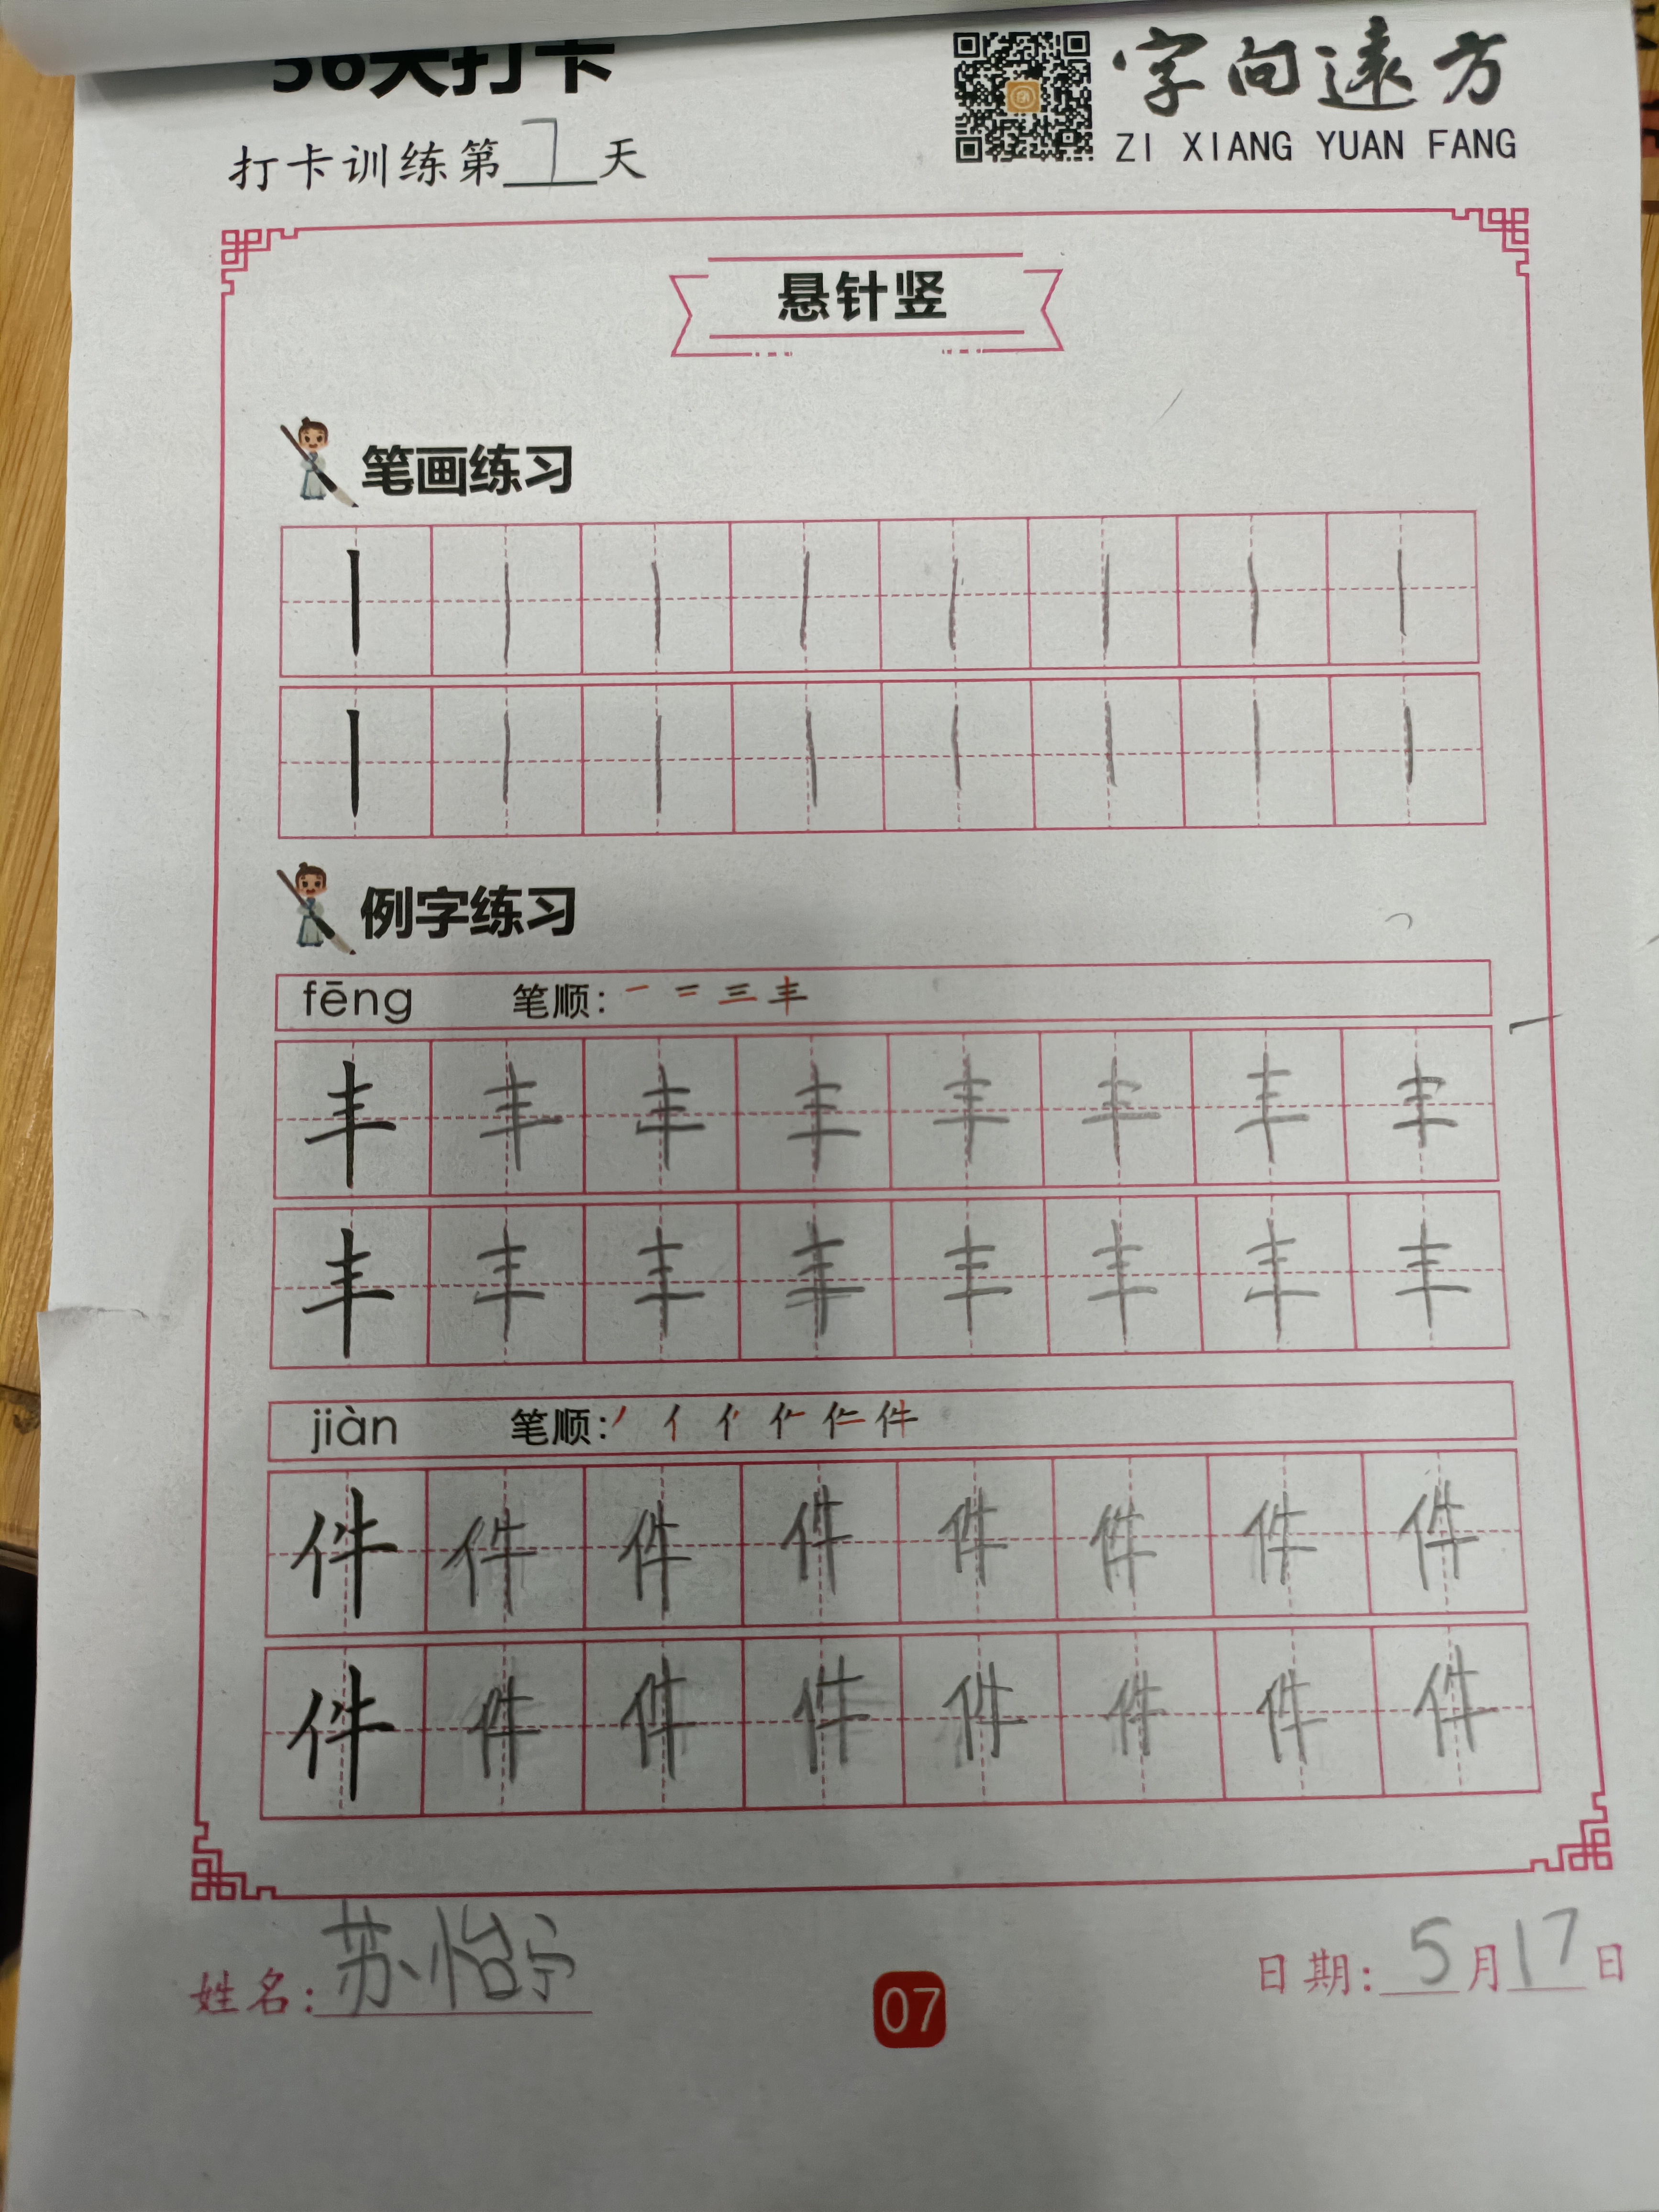 36天打卡
字向遠方
ZI XIANG YUAN FANG
打卡训练第7天
悬针竖
笔画练习
丨丨丨丨丨丨丨丨
丨丨丨丨丨丨丨丨
例字练习
fēng 笔顺: 一 二 三 丰
丰丰丰丰丰丰丰丰
丰丰丰丰丰丰丰丰
jiàn 笔顺: 丿 亻 件
件件件件件件件件
件件件件件件件件
姓名: 苏怡宁
07
日期: 5月17日